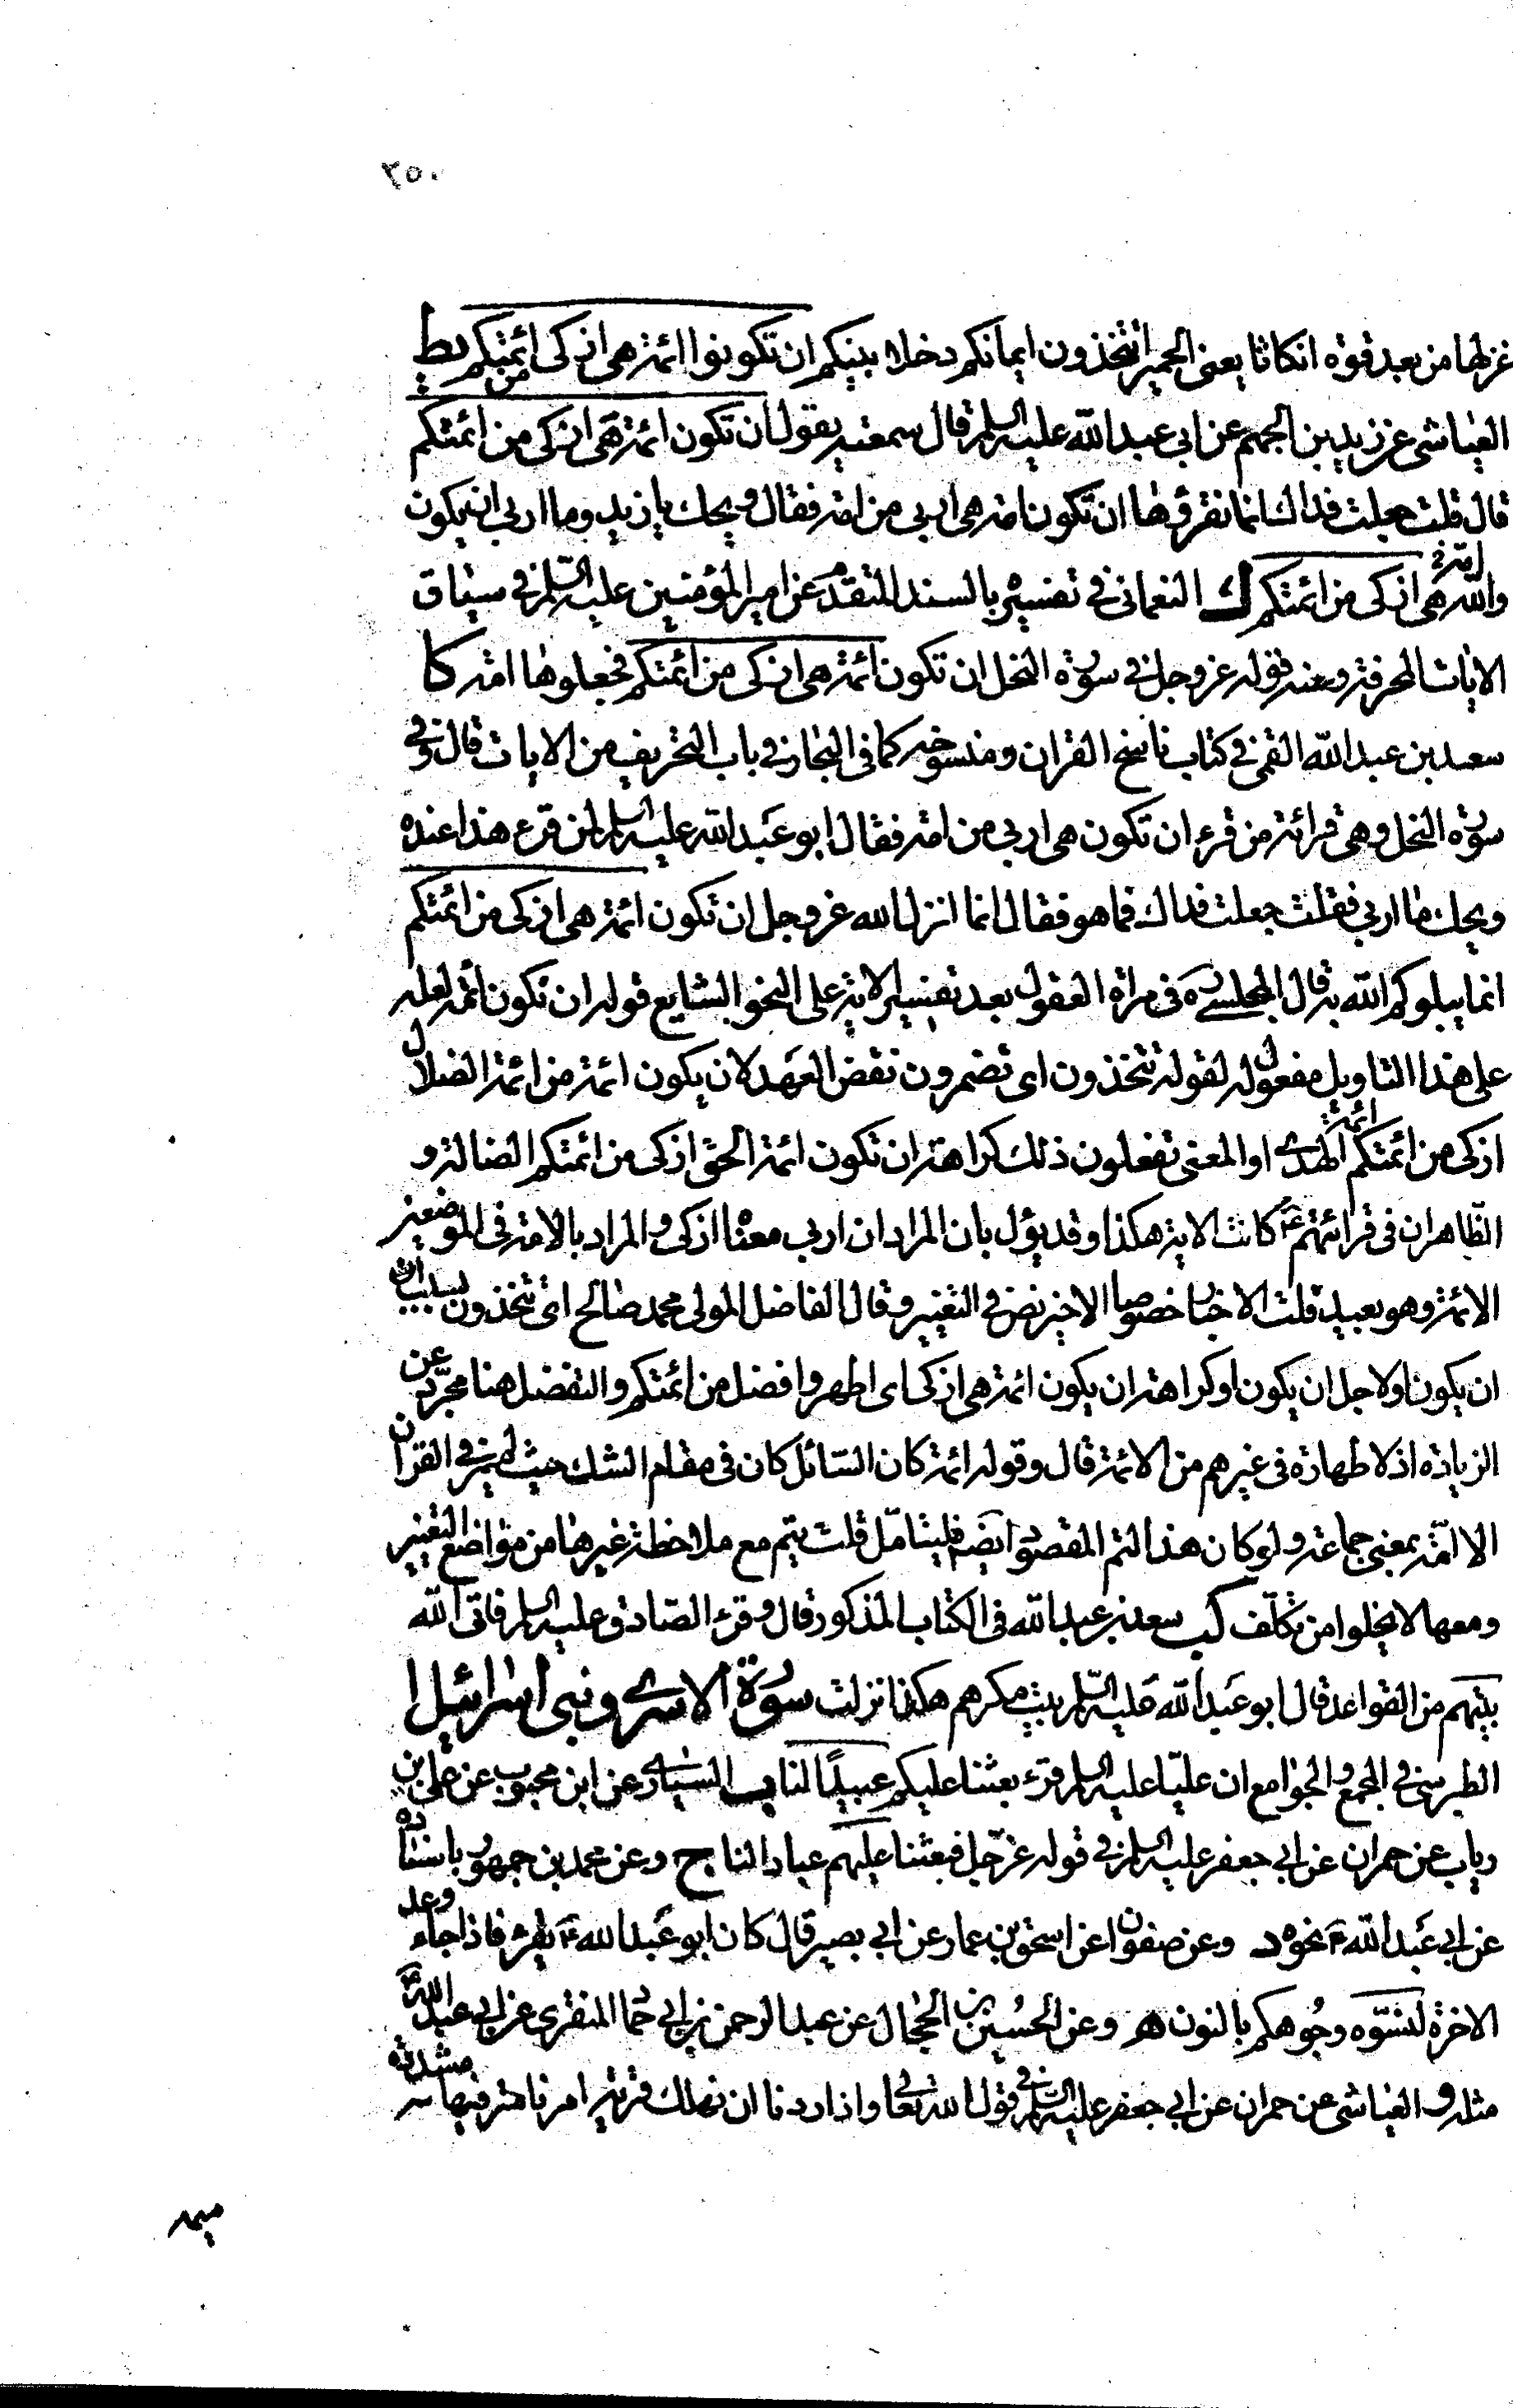 ٢٥٠
غزلها من بعد قوة انكاثا يعنى الحميرا تتخذون ايمانكم دخلا بينكم ان تكونوا ائمة هى ازكى من ائمتكم يط
العياشى عن زيد بن الجهم عن ابى عبد الله عليه السلم قال سمعته يقول ان تكون ائمة هى ازكى من ائمتكم
قال قلت جعلت فداك انما نقرؤها ان تكون امة هى اربى من امة فقال ويحك يا زيد وما اربى ان يكون
والله ائمة هى ازكى من ائمتكم ك النعمانى فى تفسيره بالسند المتقدم عن امير المؤمنين عليه السلم فى سياق
الايات المحرفة ومنه قوله عز وجل فى سورة النحل ان تكون ائمة هى ازكى من ائمتكم فجعلوها امة كا
سعد بن عبد الله القمى فى كتاب ناسخ القران ومنسوخه كما فى البحار فى باب التحريف من الايات قال وفى
سورة النحل وهى قرائة من قرء ان تكون هى اربى من امة فقال ابو عبد الله عليه السلم لمن قرء هذا عنده
ويحك ما اربى فقلت جعلت فداك فما هو فقال انما انزل الله عز وجل ان تكون ائمة هى ازكى من ائمتكم
انما يبلوكم الله به قال المجلسى ره فى مراة العقول بعد تفسير الاية على النحو الشايع قوله ان تكون ائمة لعله
على هذا التاويل مفعول له لقوله تتخذون اى تضمرون نقض العهد لان يكون ائمة من ائمة الضلال
ازكى من ائمتكم ائمة الهدى او المعنى تفعلون ذلك كراهة ان تكون ائمة الحق ازكى من ائمتكم الضالة و
الظاهر ان فى قرائتهم ع كانت الاية هكذا وقد يؤل بان المراد ان اربى معناه ازكى والمراد بالامة فى الموضعين
الائمة وهو بعيد قلت الاخبار خصوصا الاخير نص فى التغيير وقال الفاضل المولى محمد صالح اى تتخذون لسبب ان
ان يكون او لاجل ان يكون او كراهة ان يكون ائمة هى ازكى اى اطهر وافضل من ائمتكم والتفضل هنا مجرد عن
الزيادة اذ لا طهارة فى غيرهم من الائمة قال وقوله ائمة كان السائل كان فى مقام الشك حيث لم ير فى القران
الا امة بمعنى جماعة ولو كان هذا لتم المقصود ايضا فليتامل قلت يتم مع ملاحظة غيرها من مواضع التغيير
ومعها لا يخلوا من تكلف كب سعد بن عبد الله فى الكتاب المذكور قال وقرء الصادق عليه السلم فاتى الله
بيتهم من القواعد قال ابو عبد الله عليه السلم بيت مكرهم هكذا نزلت سورة الاسرى وبنى اسرائيل ا
الطبرسى فى المجمع والجوامع ان عليا عليه السلم قرء بعثنا عليكم عبيدا لنا ب السيارى عن ابن محبوب عن على بن
رياب عن حمران عن ابى جعفر عليه السلم فى قوله عز وجل فبعثنا عليهم عبادا لنا ج وعن محمد بن جمهور باسناده
عن ابى عبد الله ع نحوه د وعن صفوان عن اسحق بن عمار عن ابى بصير قال كان ابو عبد الله ع يقرء فاذا جاء وعد
الاخرة لنسوه وجوهكم بالنون ه وعن الحسين بن الجمال عن عبد الرحمن بن ابى حماد المنقرى عن ابى عبد الله ع
مثله و العياشى عن حمران عن ابى جعفر عليه السلم فى قول الله تعالى واذا اردنا ان نهلك قرية امرنا مترفيها مشددة